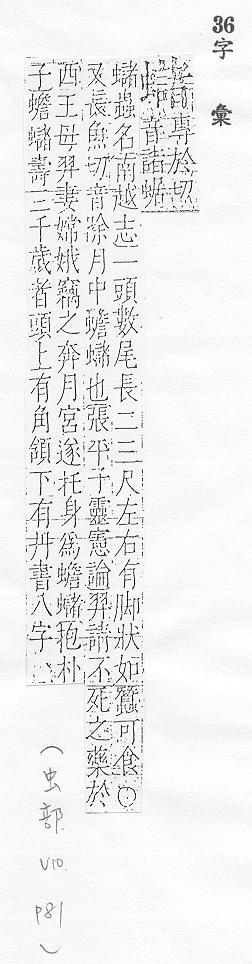 36字 彙
專於切
音諸蜍
蠩蟲名南越志一頭數尾長二三尺左右有脚狀如蠶可食○
又長魚切音除月中蟾蠩也張平子靈憲論羿請不死之藥於
西王母羿妻嫦娥竊之奔月宮遂托身爲蟾蠩抱朴
子蟾蠩壽三千歲者頭上有角頷下有丹書八字
(虫部 V10. P81)